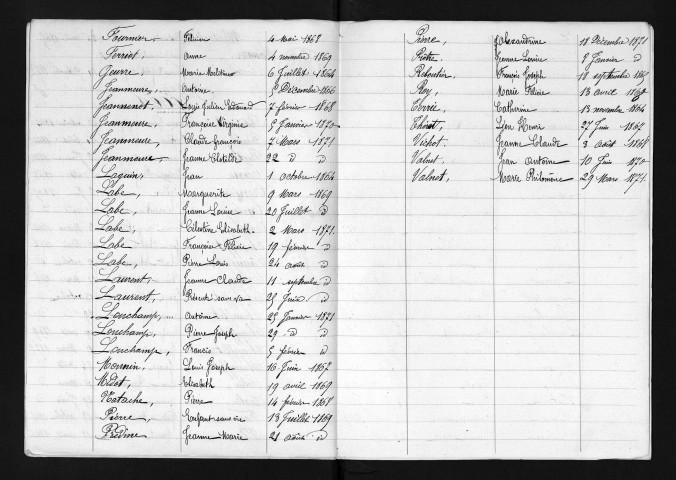 Fournier, Félicien 4 Mai 1868
Ferriot, Anne 4 novembre 1869
Jeuvre, Marie 6 Juillet 1864
Jeanmeure, Antoine 5 Décembre 1866
Jeannenot Louis Julien Edouard 7 février 1868
Jeanmeure, Françoise Virginie 5 Janvier 1870
Jeanmeure, Claude françois 7 Mars 1871
Jeanmeure Jeanne Clotilde 22 d d
Laguin, Jean 1 octobre 1864
Labe, Marguerite 9 Mars 1869
Labe, Jeanne Louise 20 Juillet d
Labe, Célestine Elizabeth 2 Mars 1871
Labe Françoise Félicie 19 février d
Labe, Pierre Louis 24 août d
Laurent, Jeanne Claude 11 septembre d
Laurent, Présenté sans vie 25 Juin d
Lonchamp, Antoine 25 Janvier 1871
Lonchamp, Pierre Joseph 29 d d
Lonchamp, Francis 5 février d
Monnin, Louis Joseph 16 Juin 1867
Midot, Elisabeth 19 avril 1869
Natache, Pierre 14 février 1868
Pierre, Enfant sans vie 13 Juillet 1869
Prédine Jeanne Marie 21 août d
Pierre, Alexandrine 18 Décembre 1871
Piètre, Jeanne Louise 8 Janvier d
Riboulin, François Joseph 18 septembre 1865
Rey, Marie Félicie 13 avril 1869
Catherine 13 novembre 1864
Thiriot, Léon Henri 27 Juin 1867
Vichot, Jeanne Claude 3 août 1868
Valnet, Jean Antoine 10 Juin 1870
Valnet, Marie Philomène 29 Mars 1871